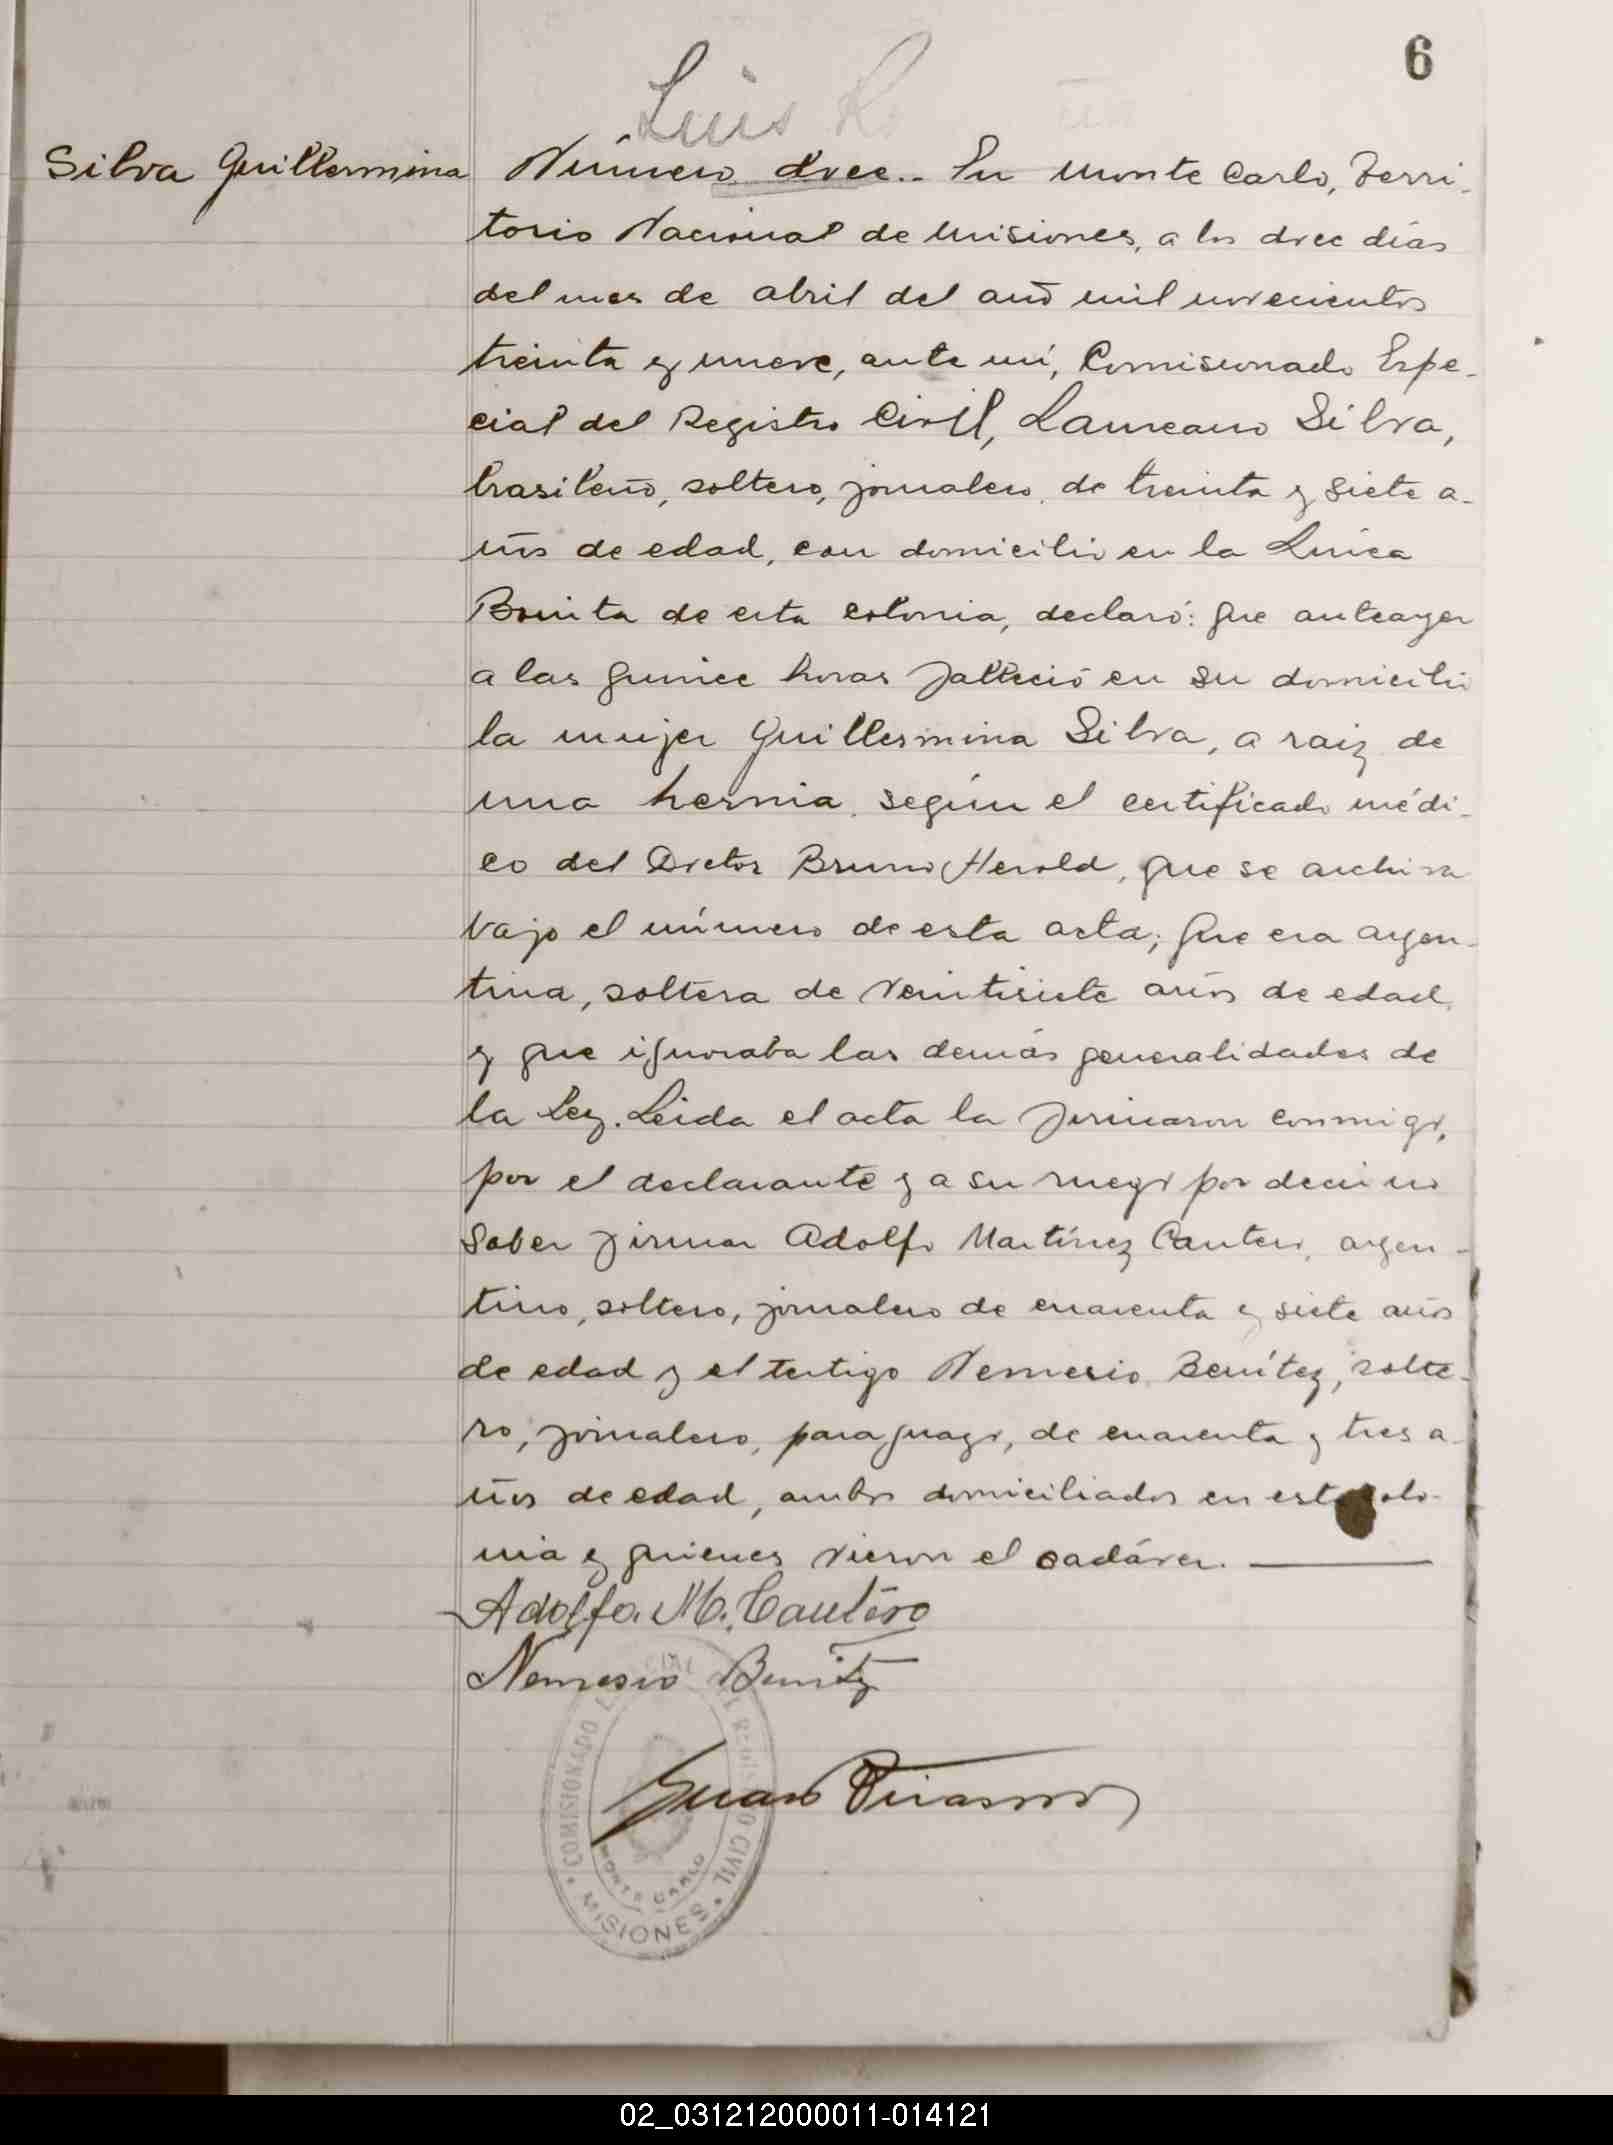 6
Luis
Silva Guillermina
Número doce.- En Monte Carlo, Terri-
torio Nacional de Misiones, a los doce días
del mes de abril del año mil novecientos
treinta y nueve, ante mí, Comisionado Espe-
cial del Registro Civil, Laureano Silva,
brasileño, soltero, jornalero, de treinta y siete a-
ños de edad, con domicilio en la Línea
Bonita de esta colonia, declaró: Que anteayer
a las quince horas falleció en su domicilio
la mujer Guillermina Silva, a raiz de
una hernia, según el certificado médi-
co del Doctor Bruno Herold, que se archiva
bajo el número de esta acta; Que era argen-
tina, soltera de veintisiete años de edad,
y que ignoraba las demás generalidades de
la Ley. Leida el acta la firmaron conmigo,
por el declarante y a su ruego por decir no
saber firmar Adolfo Martínez Cantero, argen-
tino, soltero, jornalero de cuarenta y siete años
de edad y el testigo Nemesio Benítez, solte-
ro, jornalero, paraguayo, de cuarenta y tres a-
ños de edad, ambos domiciliados en esta colo-
nia y quienes vieron el cadáver.
Adolfo. M. Cantero
Nemesio Benitez
Juan
COMISIONADO ESPECIAL DEL REGISTRO CIVIL
MONTE CARLO
MISIONES
02_031212000011-014121